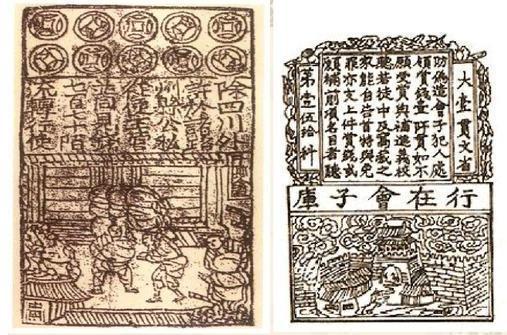 除四川外
許於諸路
州縣公私
從便主管
並同見錢
七百七十陌
流轉行使
大壹貫文省
偽造會子犯人處
賞錢壹阡貫如不
願受賞與補進義校
若徒中及窩藏之
家能自告首特與免
罪亦支上件賞錢或
願補前項名目者聽
第壹伍拾料
行在會子庫